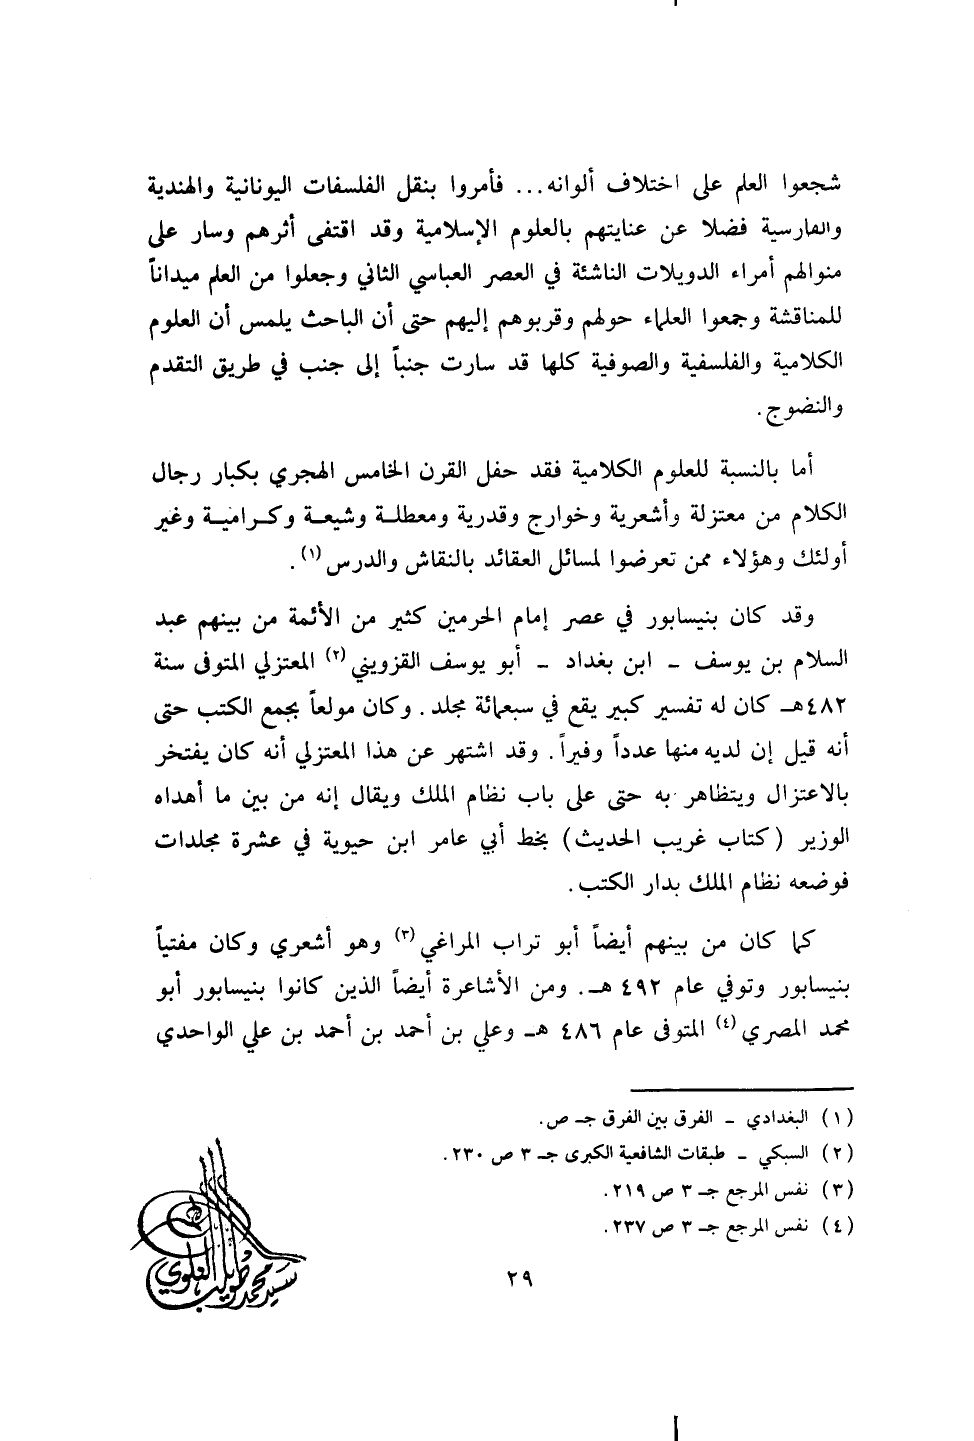 شجعوا العلم على اختلاف ألوانه... فأمروا بنقل الفلسفات اليونانية والهندية
والفارسية فضلا عن عنايتهم بالعلوم الإسلامية وقد اقتفى أثرهم وسار على
منوالهم أمراء الدويلات الناشئة في العصر العباسي الثاني وجعلوا من العلم ميداناً
للمناقشة وجمعوا العلماء حولهم وقربوهم إليهم حتى أن الباحث يلمس أن العلوم
الكلامية والفلسفية والصوفية كلها قد سارت جنباً إلى جنب في طريق التقدم
والنضوج.
أما بالنسبة للعلوم الكلامية فقد حفل القرن الخامس الهجري بكبار رجال
الكلام من معتزلة وأشعرية وخوارج وقدرية ومعطلـة وشيعـة وكـراميـة وغير
أولئك وهؤلاء ممن تعرضوا لمسائل العقائد بالنقاش والدرس (١).
وقد كان بنيسابور في عصر إمام الحرمين كثير من الأئمة من بينهم عبد
السلام بن يوسف ـ ابن بغداد ـ أبو يوسف القزويني (٢) المعتزلي المتوفى سنة
٤٨٢هـ كان له تفسير كبير يقع في سبعمائة مجلد. وكان مولعاً بجمع الكتب حتى
أنه قيل إن لديه منها عدداً وفيراً. وقد اشتهر عن هذا المعتزلي أنه كان يفتخر
بالاعتزال ويتظاهر به حتى على باب نظام الملك ويقال إنه من بين ما أهداه
الوزير (كتاب غريب الحديث) بخط أبي عامر ابن حيوية في عشرة مجلدات
فوضعه نظام الملك بدار الكتب.
كما كان من بينهم أيضاً أبو تراب المراغي (٣) وهو أشعري وكان مفتياً
بنيسابور وتوفي عام ٤٩٢ هـ. ومن الأشاعرة أيضاً الذين كانوا بنيسابور أبو
محمد المصري (٤) المتوفى عام ٤٨٦ هـ وعلي بن أحمد بن أحمد بن علي الواحدي
(١) البغدادي ـ الفرق بين الفرق جـ ص.
(٢) السبكي ـ طبقات الشافعية الكبرى جـ ٣ ص ٢٣٠.
(٣) نفس المرجع جـ ٣ ص ٢١٩.
(٤) نفس المرجع جـ ٣ ص ٢٣٧.
٢٩
سيد محمد طويلب العلوي